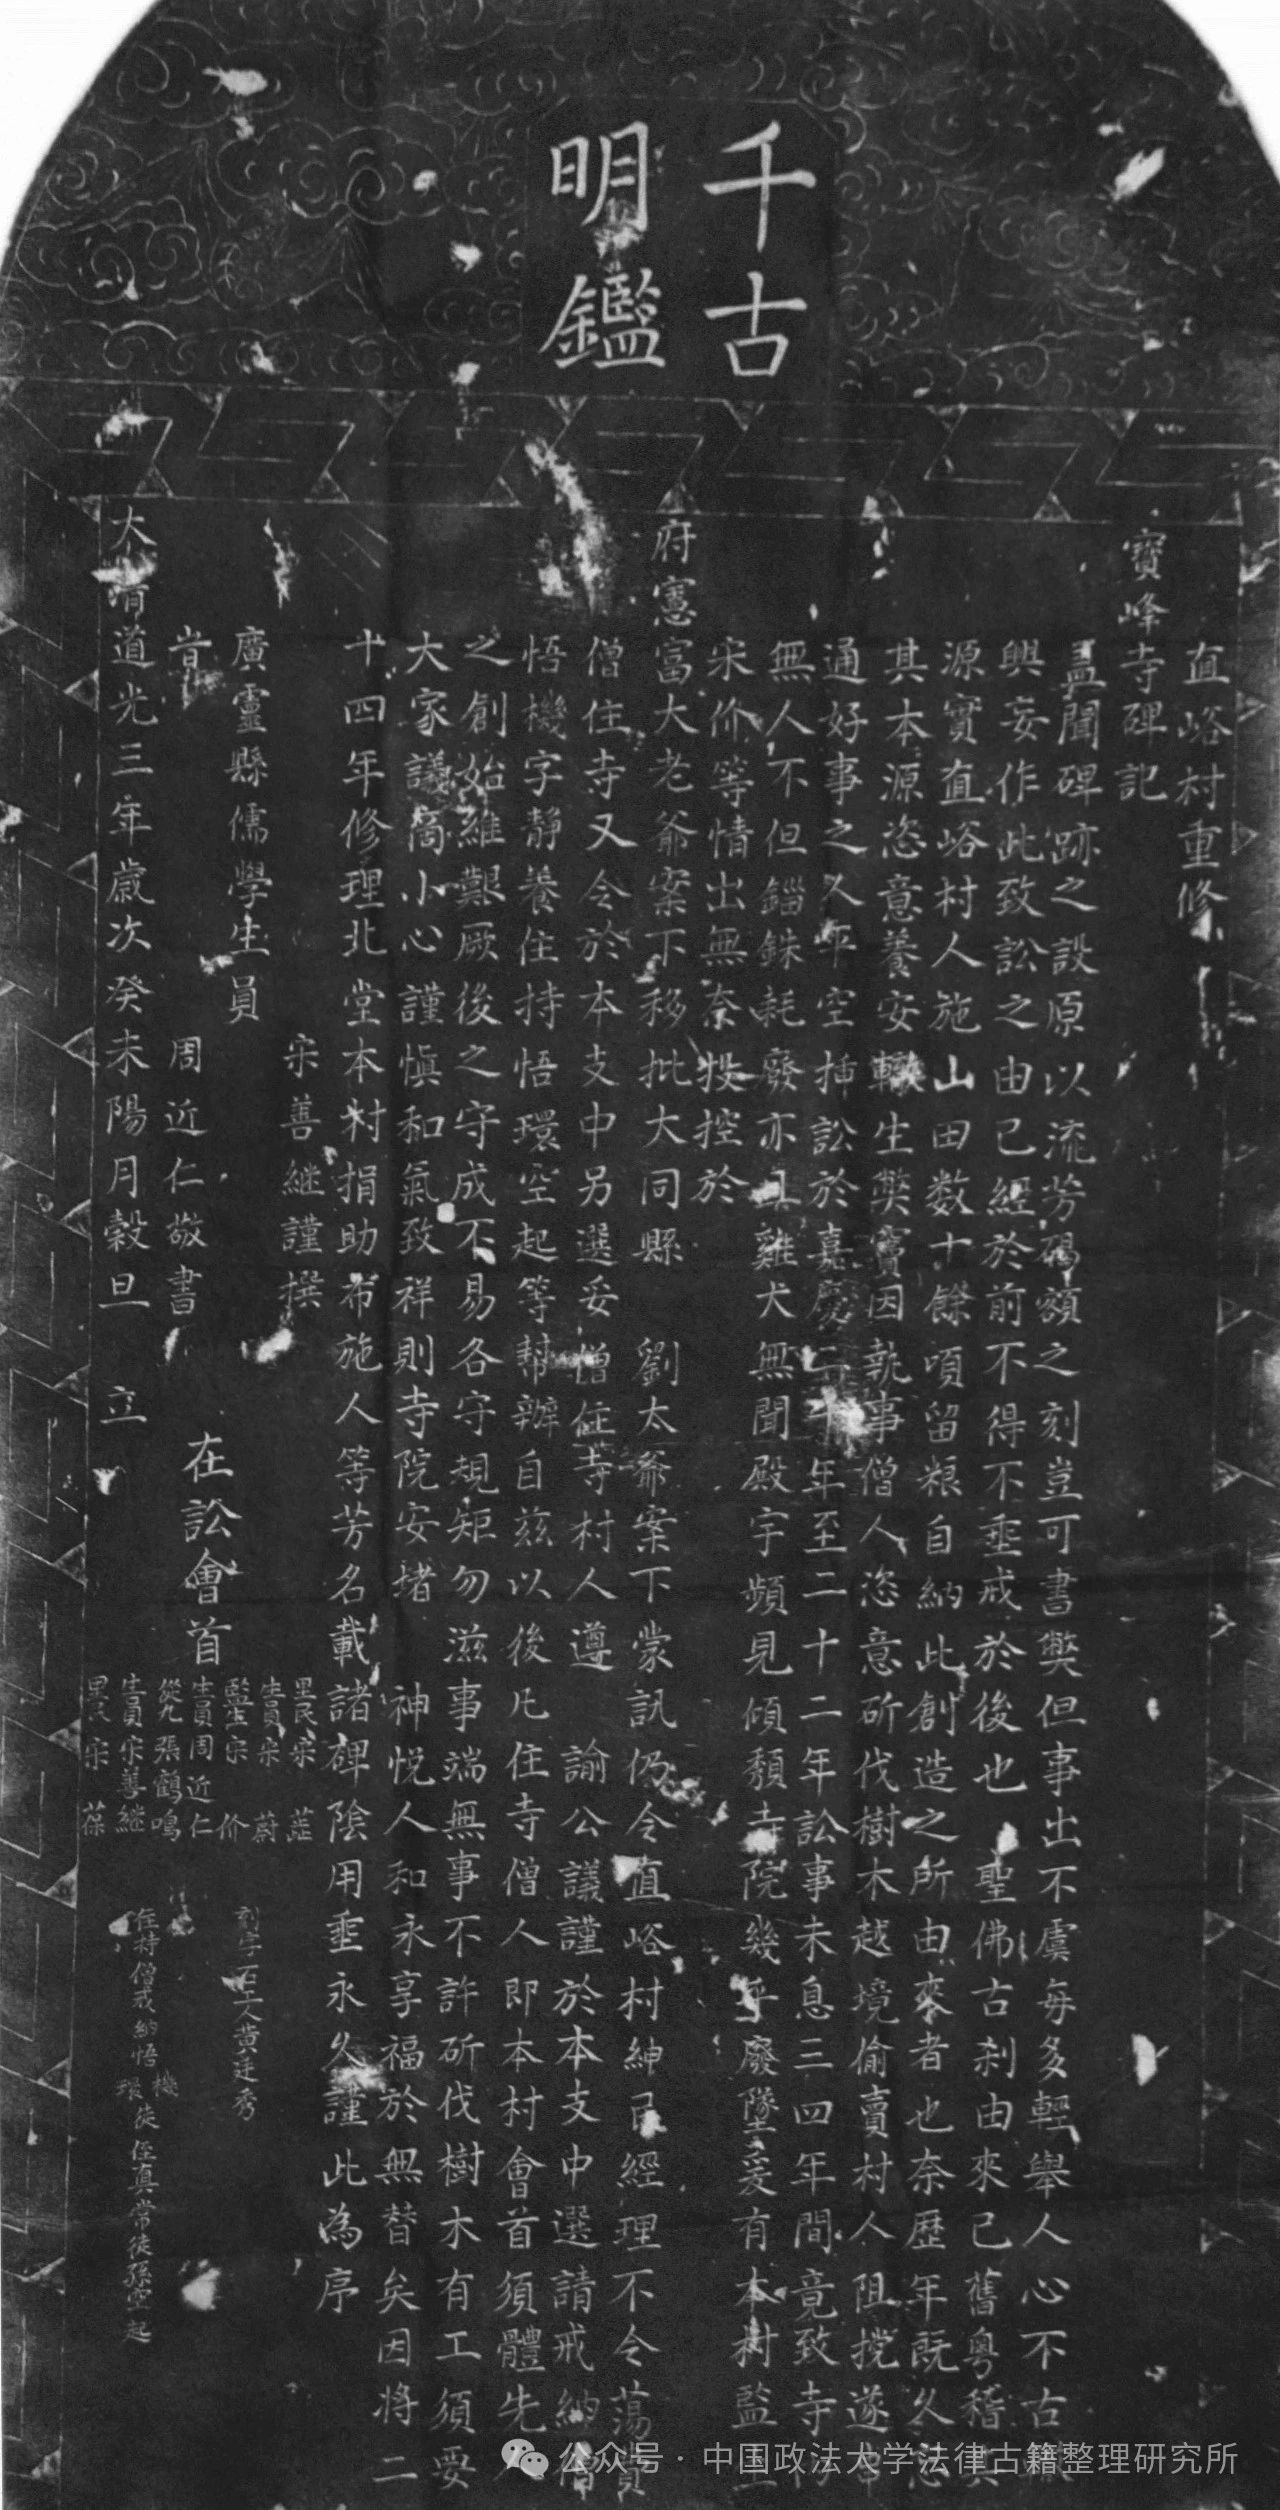 千古
明鑑
直峪村重修
寶峰寺碑記
盖聞碑跡之設原以流芳碣額之刻豈可書獘但事出不虞每多輕舉人心不古
興妄作此致訟之由已經於前不得不垂戒於後也　聖佛古刹由來已舊粵稽其
源實直峪村人施山田数十餘頃留粮自納此創造之所由來者也奈歷年既久忘
其本源恣意養安轍生獘竇因執事僧人恣意斫伐樹木越境偷賣村人阻撓遂串
通好事之人平空揷訟於嘉慶二十年至二十二年訟事未息三四年間竟致寺内
無人不但錙銖耗廢亦且雞犬無聞殿宇頻見傾頹寺院幾乎廢墜爰有本村監生
宋价等情出無奈投控於
府憲富大老爺案下移批大同縣　劉太爺案下蒙訊仍令直峪村紳民經理不令蕩費
僧住寺又令於本支中另選妥僧住寺村人遵　諭公議謹於本支中選請戒納僧
悟機字靜養住持悟環空起等幇辦自兹以後凡住寺僧人即本村會首須體先
之創始維艱厥後之守成不易各守規矩勿滋事端無事不許斫伐樹木有工須要
大家議啇小心謹愼和氣致祥則寺院安堵　神悦人和永享福於無替矣因將二
十四年修理北堂本村捐助布施人等芳名載諸碑陰用垂永久謹此為序
宋善継謹撰
廣靈縣儒學生員
周近仁敬書
旹
大清道光三年歲次癸未陽月穀旦　立
在訟會首
里民宋蓝
生員宋蔚
監生宋价
生員周近仁
從九張鶴鳴
生員宋善継
里民宋葆
刻字石工人黄廷秀
住持僧戒納悟機環徒侄真常徒孫空起
公众号·中国政法大学法律古籍整理研究所